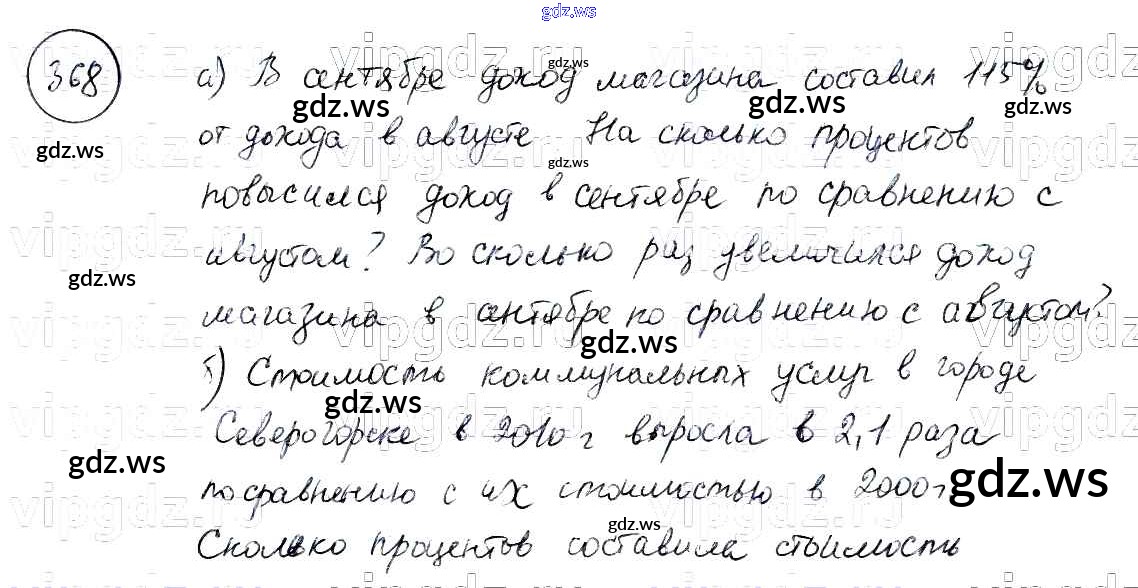 gdz.ws
368 а) В сентябре доход магазина составил 115%
gdz.ws
gdz.ws
gdz.ws
от дохода в августе На сколько процентов
gdz.ws
gdz.ws
повысился доход в сентябре по сравнению с
августом? Во сколько раз увеличился доход
gdz.ws
магазина в сентябре по сравнению с августом?
gdz.ws
б) Стоимость коммунальных услуг в городе
gdz.ws
Северогорске в 2010 г выросла в 2,1 раза
gdz.ws
по сравнению с их стоимостью в 2000г
gdz.ws
gdz.ws
Сколько процентов составила стоимость
vipgdz.ru